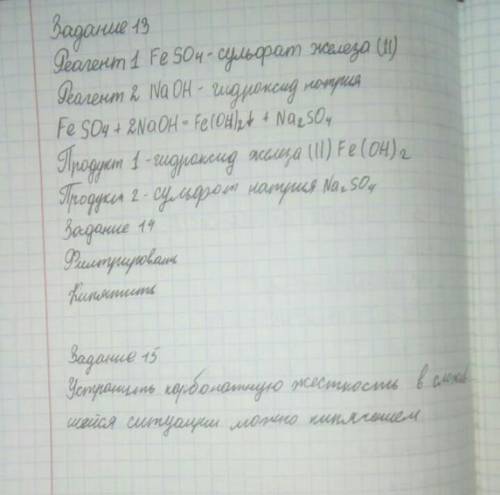 Задание 13
Реагент 1 FeSO4 - сульфат железа (II)
Реагент 2 NaOH - гидроксид натрия
FeSO4 + 2NaOH = Fe(OH)2↓ + Na2SO4
Продукт 1 - гидроксид железа (II) Fe(OH)2
Продукт 2 - сульфат натрия Na2SO4
Задание 14
Фильтровать
Кипятить
Задание 15
Устранить карбонатную жесткость в сложив
шейся ситуации можно кипячением.